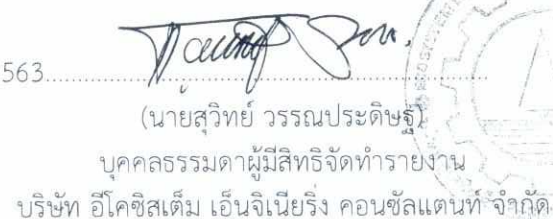 563
(นายสุวิทย์ วรรณประดิษฐ์)
บุคคลธรรมดาผู้มีสิทธิจัดทำรายงาน
บริษัท อีโคซิสเต็ม เอ็นจิเนียริ่ง คอนซัลแตนท์ จำกัด